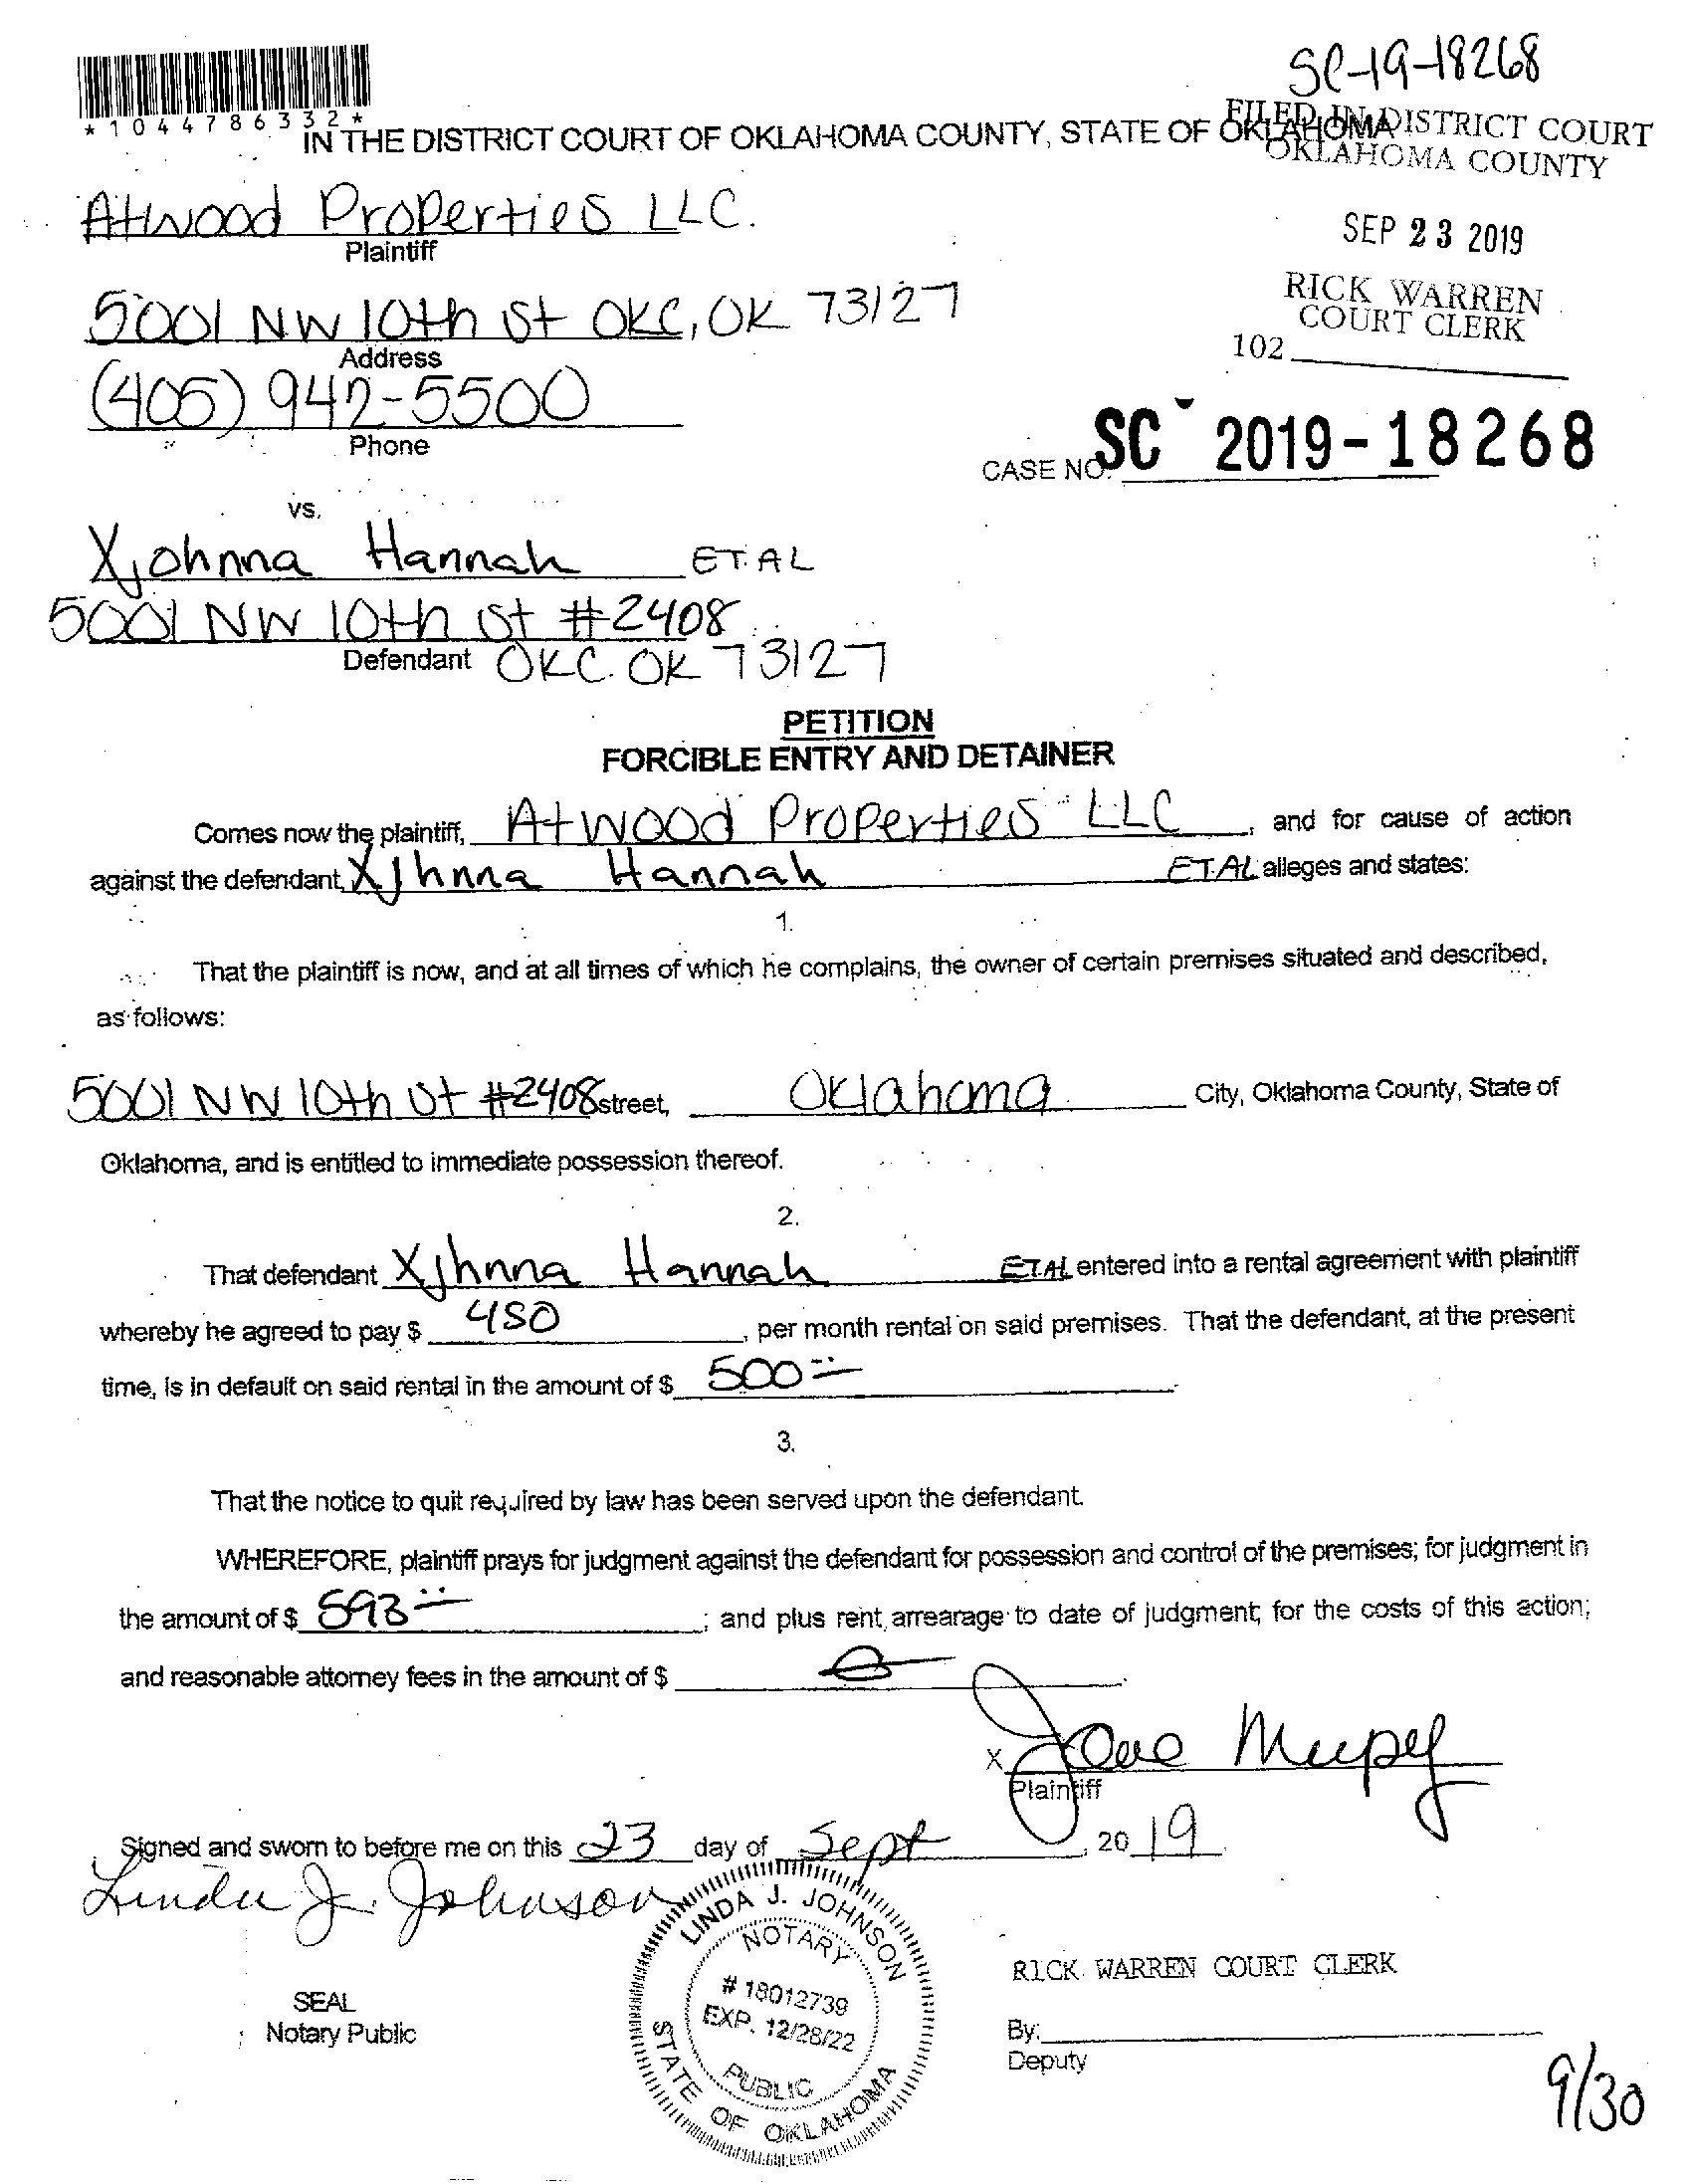 SC-19-18268
*1044786332*
IN THE DISTRICT COURT OF OKLAHOMA COUNTY, STATE OF OKLAHOMA
FILED IN DISTRICT COURT
OKLAHOMA COUNTY
Atwood Properties LLC.
Plaintiff
SEP 23 2019
5001 NW 10th St OKC, OK 73127
Address
RICK WARREN
COURT CLERK
102
(405) 942-5500
Phone
CASE NO. SC 2019-18268
vs.
Xjohnna Hannah ET.AL
5001 NW 10th St #2408
Defendant OKC. OK 73127
PETITION
FORCIBLE ENTRY AND DETAINER
Comes now the plaintiff, Atwood Properties LLC, and for cause of action
against the defendant, Xjhnna Hannah ET.AL alleges and states:
1.
That the plaintiff is now, and at all times of which he complains, the owner of certain premises situated and described,
as follows:
5001 NW 10th St #2408 street, Oklahoma City, Oklahoma County, State of
Oklahoma, and is entitled to immediate possession thereof.
2.
That defendant Xjhnna Hannah ET.AL entered into a rental agreement with plaintiff
whereby he agreed to pay $ 450, per month rental on said premises. That the defendant, at the present
time, is in default on said rental in the amount of $ 500
3.
That the notice to quit required by law has been served upon the defendant.
WHEREFORE, plaintiff prays for judgment against the defendant for possession and control of the premises; for judgment in
the amount of $ 593; and plus rent arrearage to date of judgment; for the costs of this action;
and reasonable attorney fees in the amount of $
X
Plaintiff
Signed and sworn to before me on this 23 day of Sept, 2019
Linda J. Johnson
LINDA J. JOHNSON
NOTARY
# 18012739
EXP. 12/28/22
PUBLIC
STATE OF OKLAHOMA
SEAL
Notary Public
RICK WARREN COURT CLERK
By:
Deputy
9/30